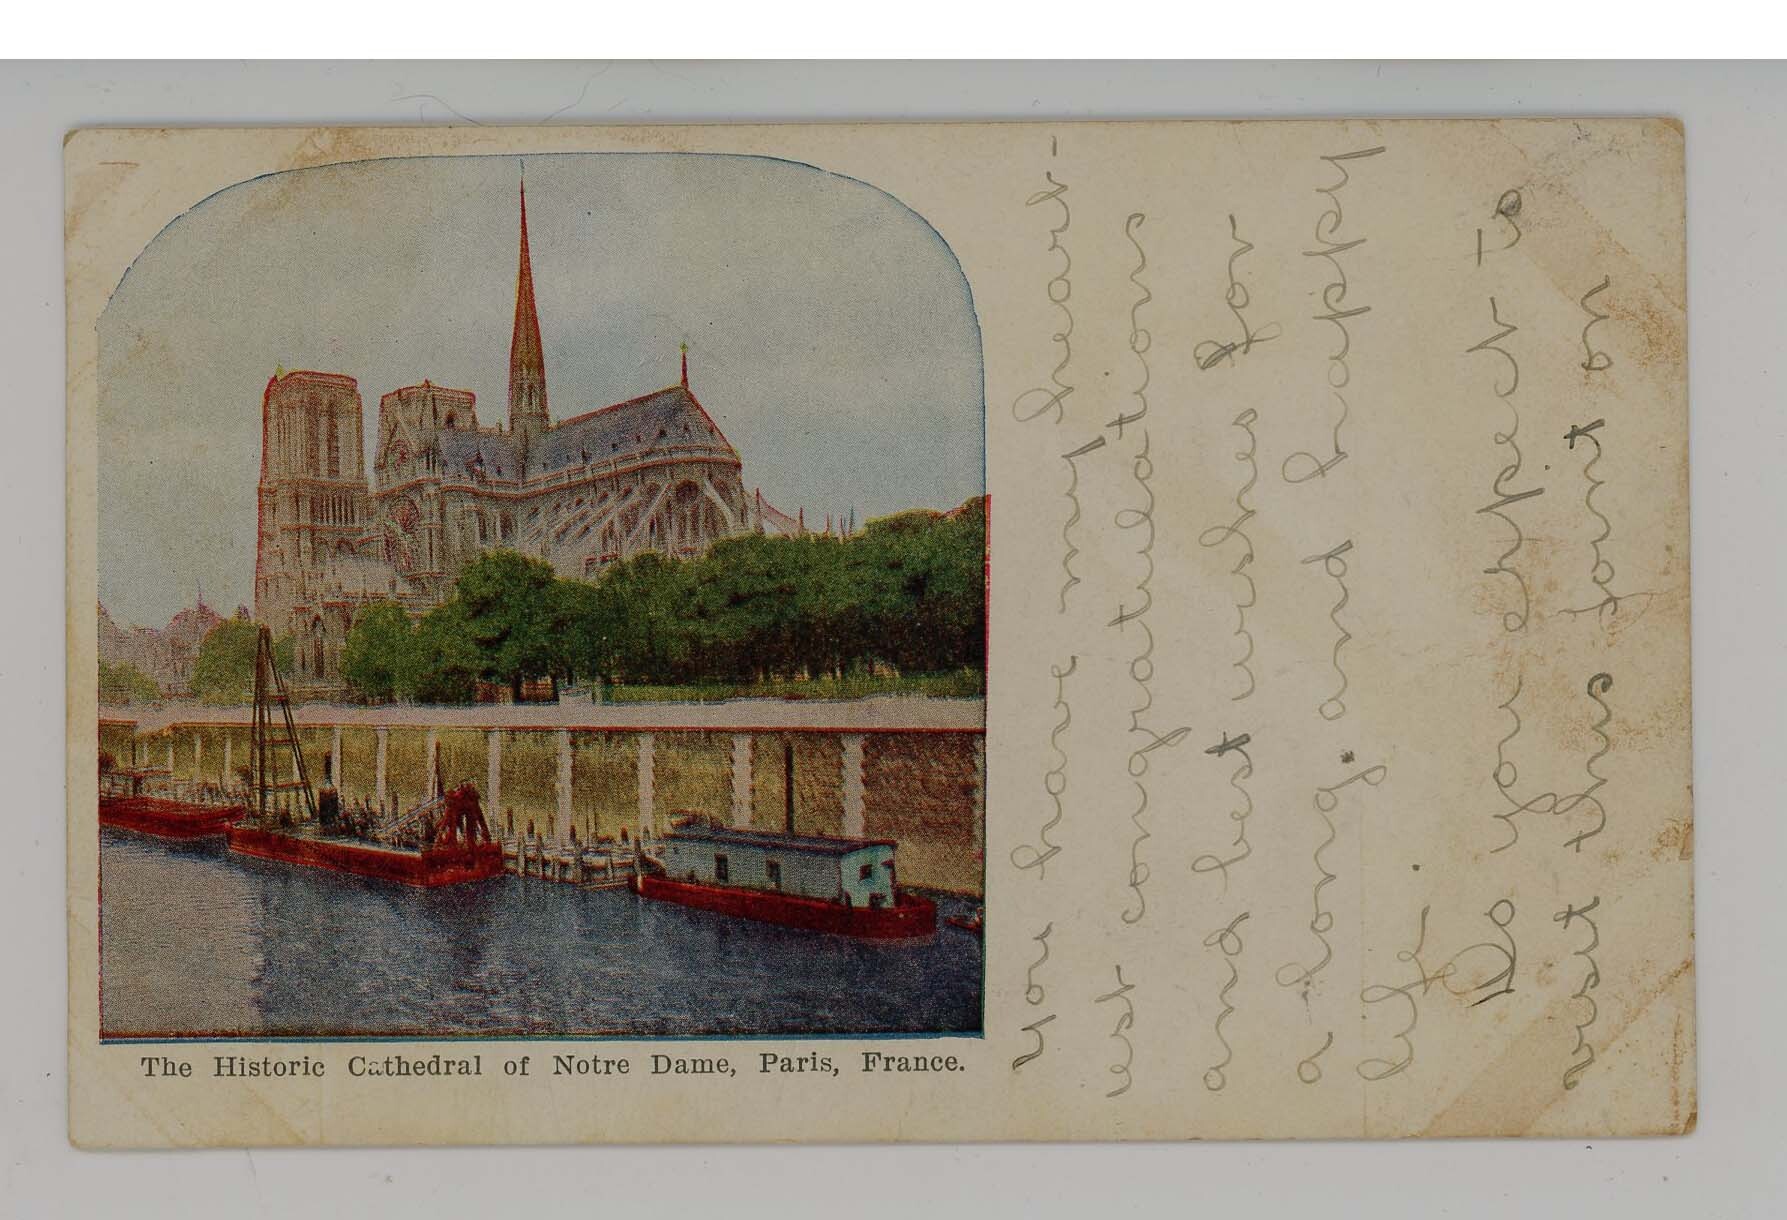 The Historic Cathedral of Notre Dame, Paris, France.
You have my heart-
est congratulations
and best wishes for
a long, and happy
life.
Do you expect to
visit this joint on